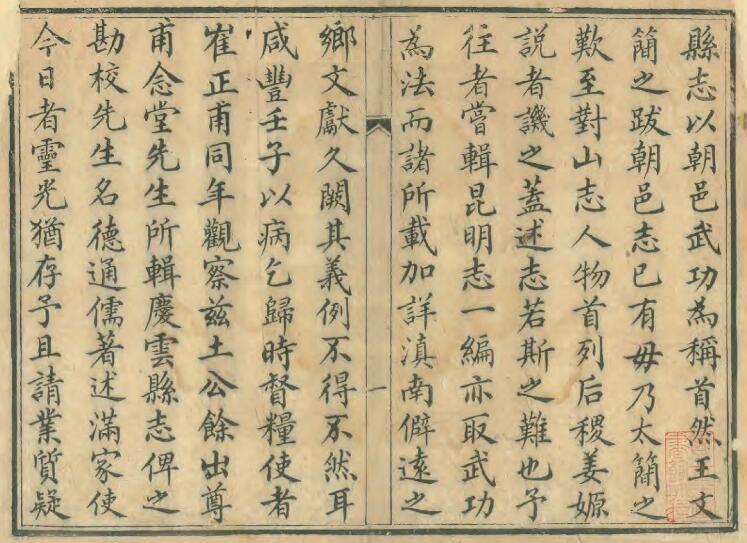 縣志以朝邑武功為稱首然王文
簡之跋朝邑志已有毋乃太簡之
歎至對山志人物首列后稷姜嫄
說者譏之蓋述志若斯之難也予
往者嘗輯昆明志一編亦取武功
為法而諸所載加詳滇南僻遠之
一
鄉文獻久闕其義例不得不然耳
咸豐壬子以病乞歸時督糧使者
崔正甫同年觀察茲土公餘出尊
甫念堂先生所輯慶雲縣志俾之
勘校先生名德通儒著述滿家使
今日者靈光猶存予且請業質疑